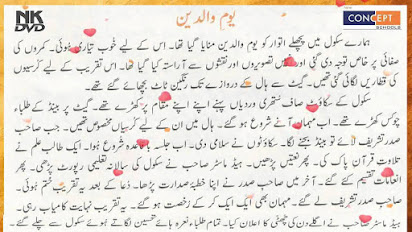 NK DVD
یوم والدین
CONCEPT SCHOOLS
ہمارے سکول میں پچھلے اتوار کو یوم والدین منایا گیا تھا۔ اس کے لیے خوب تیاری ہوئی۔ کمروں کی
صفائی پر خاص توجہ دی گئی اور انہیں تصویروں اور نقشوں سے آراستہ کیا گیا تھا۔ اس تقریب کے لیے کرسیوں
کی قطاریں لگائی گئی تھیں۔ گیٹ سے ہال کے دروازے تک رنگین ٹاٹ بچھائے گئے تھے۔
سکول کے سکاؤٹ صاف ستھری وردیاں پہنے اپنے اپنے مقام پر کھڑے تھے۔ گیٹ پر بینڈ کے طلباء
کھڑے تھے۔ اب مہمان آنے شروع ہو گئے۔ ہال میں ان کے لیے کرسیاں مخصوص تھیں۔ جب صاحب صدر
تشریف لائے تو بینڈ بجنے لگا۔ سکاؤٹوں نے سلامی دی۔ اب جلسہ باقاعدہ شروع ہوا۔ ایک طالب علم نے
تلاوت قرآن پاک کی۔ پھر نعتیں پڑھیں۔ ہیڈ ماسٹر صاحب نے سکول کی سالانہ تعلیمی رپورٹ پڑھی۔ پھر
انعامات تقسیم کئے گئے۔ آخر میں صاحب صدر نے اپنا خطبہ صدارت پڑھا۔ دعا کے بعد یہ تقریب ختم ہوئی۔
صاحب صدر تشریف لے گئے۔ مہمان بھی ایک ایک کر کے رخصت ہو گئے۔ یہ تقریب نہایت کامیاب رہی۔
ہیڈ ماسٹر صاحب نے اگلے دن کی چھٹی کا اعلان کیا۔ تمام طلباء نعرہ ہائے تحسین لگاتے ہوئے سکول سے چلے گئے۔